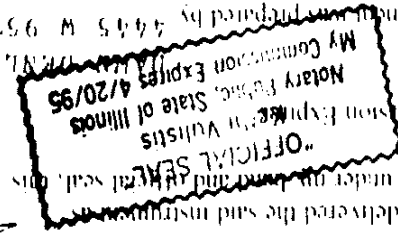 delivered the said instrument as
under my hand and official seal, this
"OFFICIAL SEAL
sion Expires
Notary Public, State of Illinois
My Commission Expires 4/20/95
prepared by 4445 W 95